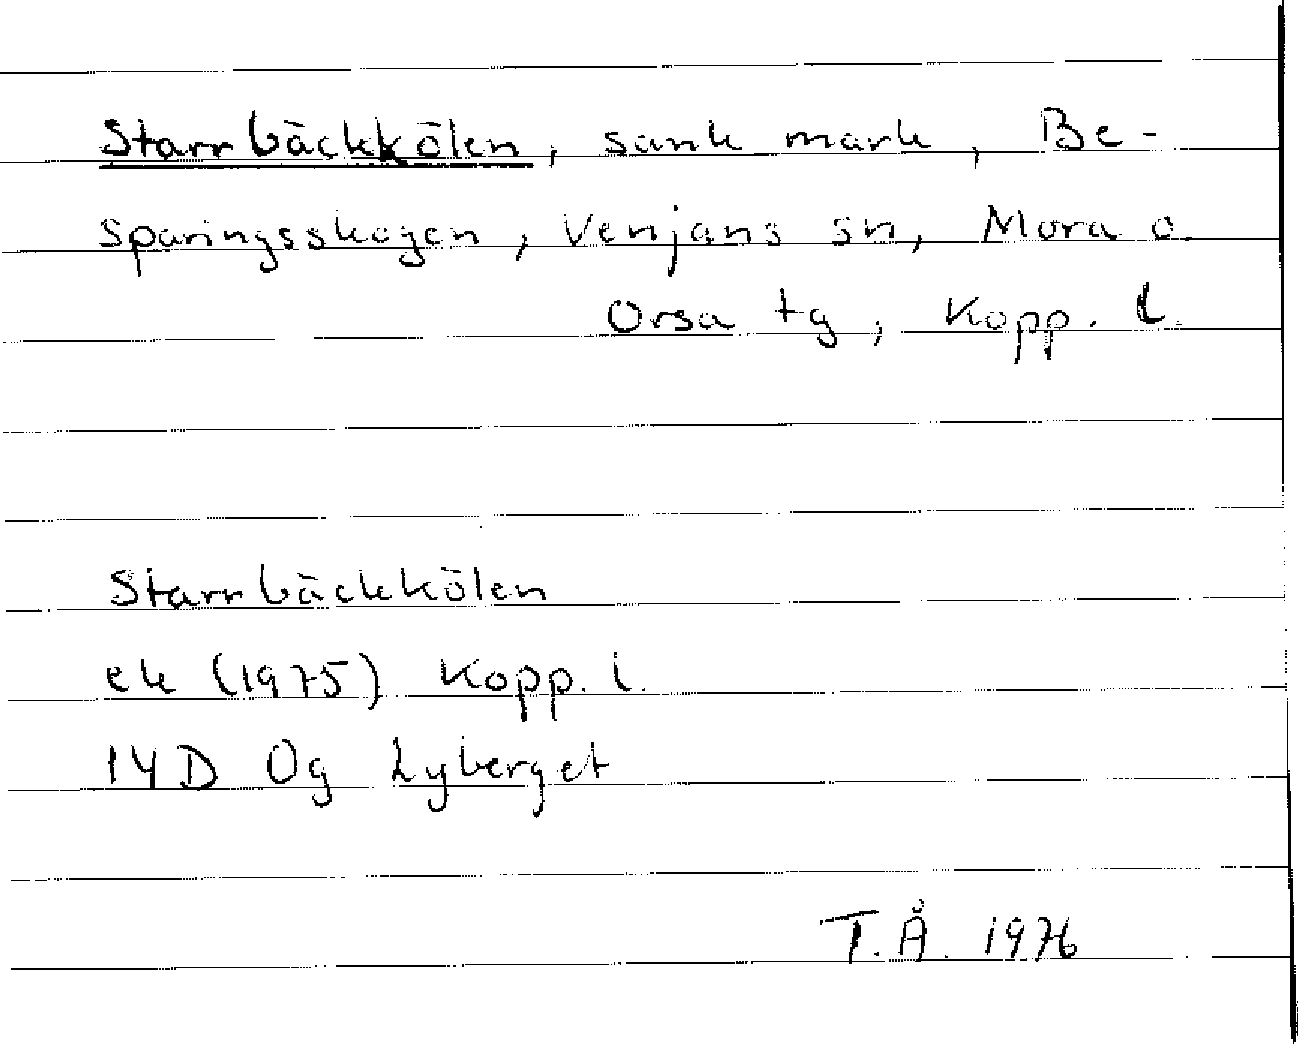 Starrbäckkölen, sank mark, Be-
sparingsskogen, Venjans sn, Mora o
Orsa tg, Kopp. l.
Starrbäckkölen
ek (1975) Kopp. l.
14D 0g Lyberget
T.Å. 1976